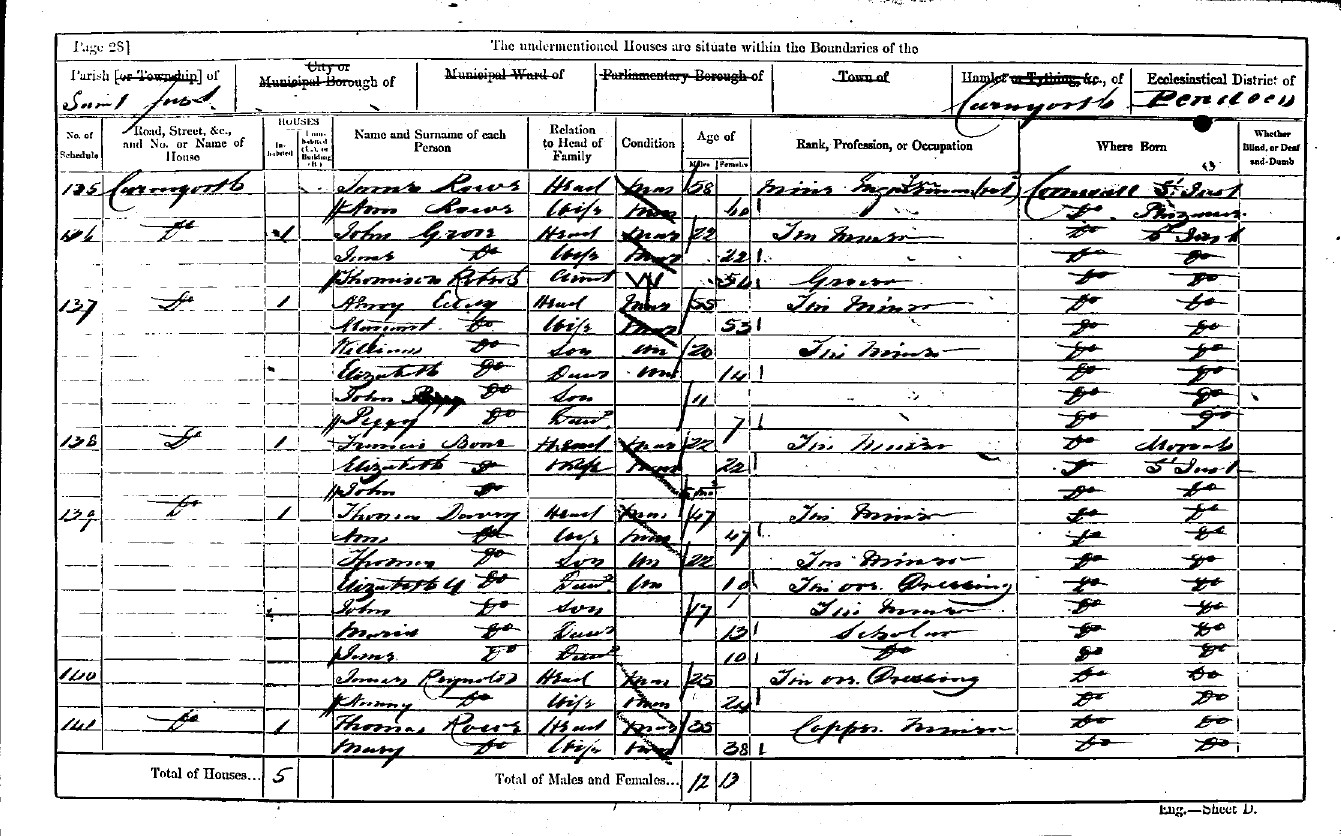 Page 28]
The undermentioned Houses are situate within the Boundaries of the
Parish [or Township] of City or Municipal Borough of Municipal Ward of Parliamentary Borough of Town of Hamlet or Tything, &c., of Ecclesiastical District of
Saint Just Carnyorth Pendeen
No. of Schedule Road, Street, &c., and No. or Name of House HOUSES Inhabited Uninhabited (U.), or Building (B.) Name and Surname of each Person Relation to Head of Family Condition Age of Males Females Rank, Profession, or Occupation Where Born Whether Blind, or Deaf-and-Dumb
135 Carnyorth James Rowe Head Mar 58 Cornwall St Just
Ann Rowe Wife Mar 60 Do
136 Do 1 John Grose Head Mar 22 Tin Miner Do St Just
Jane Do Wife Mar 22 Do Do
Thomison Aunt W Grocer Do Do
137 Do 1 Head Mar 55 Tin Miner Do Do
Margaret Do Wife Mar 53 Do Do
William Do Son Un 20 Tin Miner Do Do
Elizabeth Do Daur Un 14 Do Do
John Do Son 11 Do Do
Peggy Do Daur 7 Do Do
138 Do 1 Francis Bone Head Mar 22 Tin Miner Do Morvah
Elizabeth Do Wife Mar 22 Do St Just
John Do Mos Do Do
139 Do 1 Thomas Davey Head Mar 47 Tin Miner Do Do
Ann Do Wife Mar 47 Do Do
Thomas Do Son Un 22 Tin Miner Do Do
Elizabeth Do Daur Un Tin ore Dressing Do Do
John Do Son 17 Tin Miner Do Do
Maria Do Daur 13 Scholar Do Do
Jane Do Daur 10 Do Do Do
140 James Reynolds Head Mar 25 Tin ore Dressing Do Do
Nanny Do Wife Mar 24 Do Do
141 Do 1 Thomas Rowe Head Mar 35 Copper Miner Do Do
Mary Do Wife Mar 38 Do Do
Total of Houses... 5 Total of Males and Females... 12 13
Eng.—Sheet D.